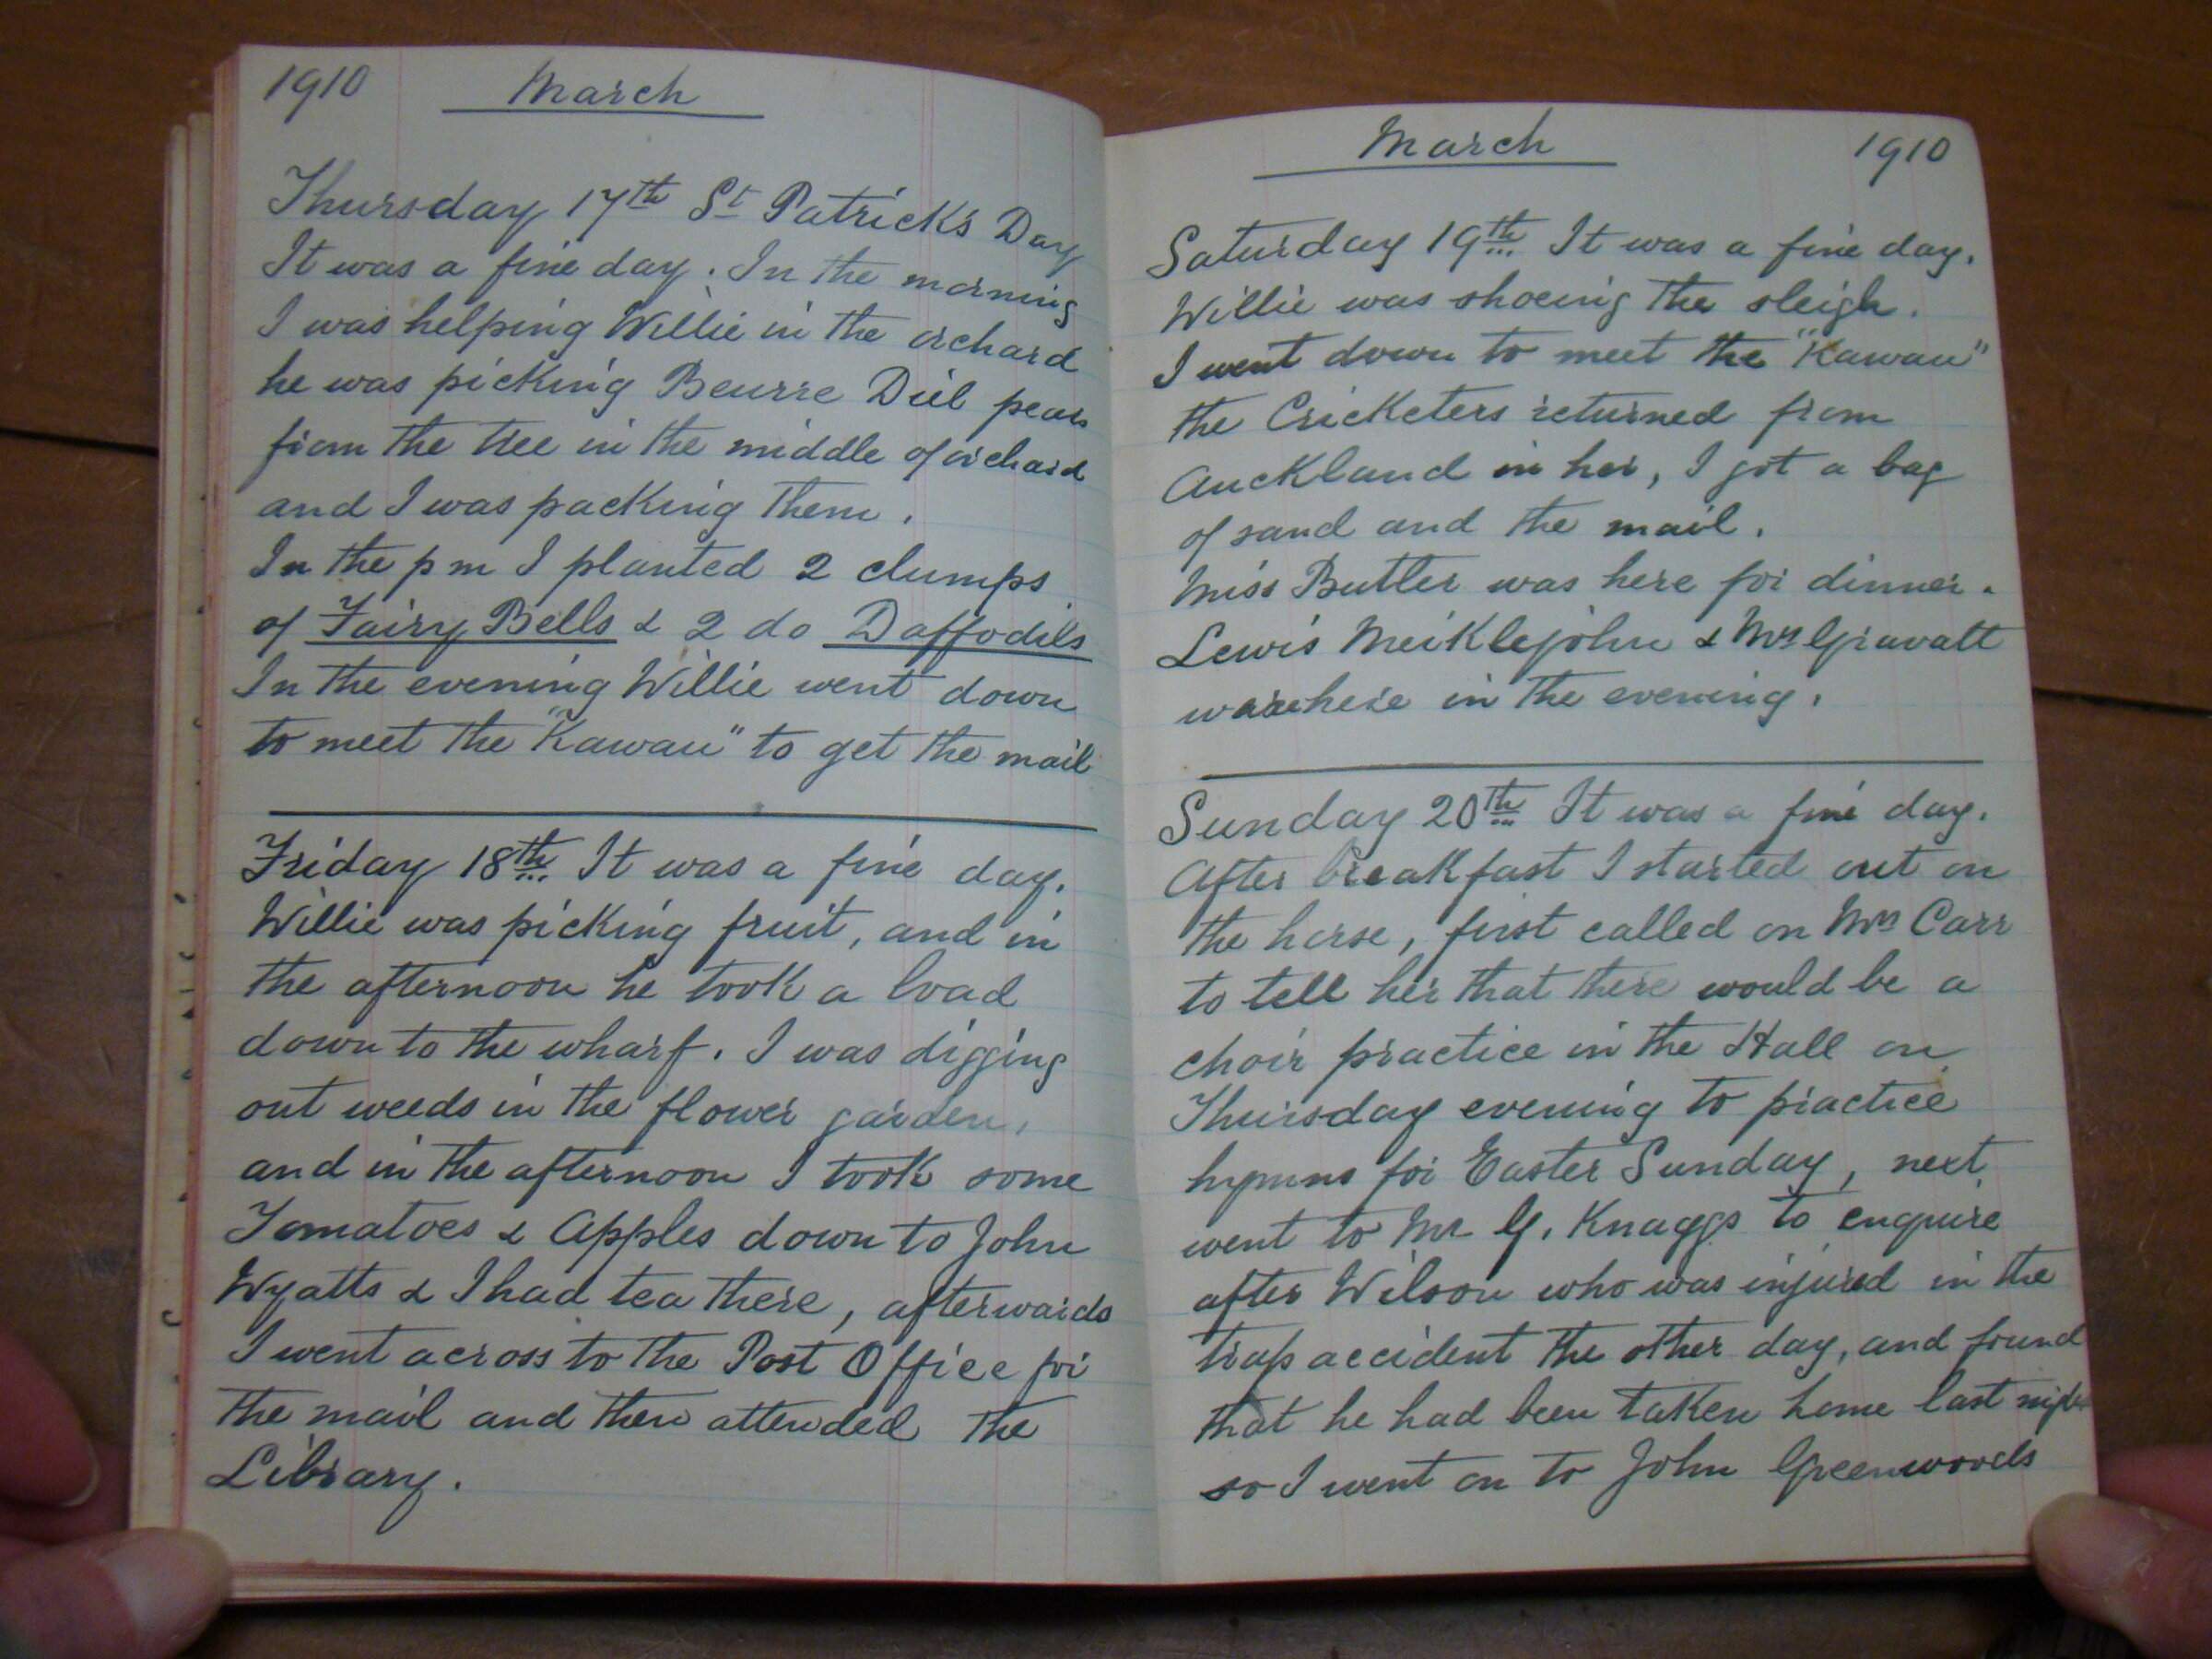 1910 March
Thursday 17th St Patrick's Day
It was a fine day. In the morning
I was helping Willie in the orchard
he was picking Beurre Diel pears
from the tree in the middle of orchard
and I was packing them.
In the p m I planted 2 clumps
of Fairy Bells & 2 do Daffodils
In the evening Willie went down
to meet the "Kawau" to get the mail
Friday 18th It was a fine day.
Willie was picking fruit, and in
the afternoon he took a load
down to the wharf. I was digging
out weeds in the flower garden,
and in the afternoon I took some
Tomatoes & Apples down to John
Wyatts & I had tea there, afterwards
I went across to the Post Office for
the mail and then attended the
Library.
March 1910
Saturday 19th It was a fine day.
Willie was shoeing the sleigh.
I went down to meet the "Kawau"
the Cricketers returned from
Auckland in her, I got a bag
of sand and the mail.
Miss Butler was here for dinner.
Lewis Meiklejohn & Mr Gravatt
were here in the evening.
Sunday 20th It was a fine day.
After breakfast I started out on
the horse, first called on Mrs Carr
to tell her that there would be a
choir practice in the Hall on
Thursday evening to practice
hymns for Easter Sunday, next
went to Mr G. Knaggs to enquire
after Wilson who was injured in the
trap accident the other day, and found
that he had been taken home last night
so I went on to John Greenwoods